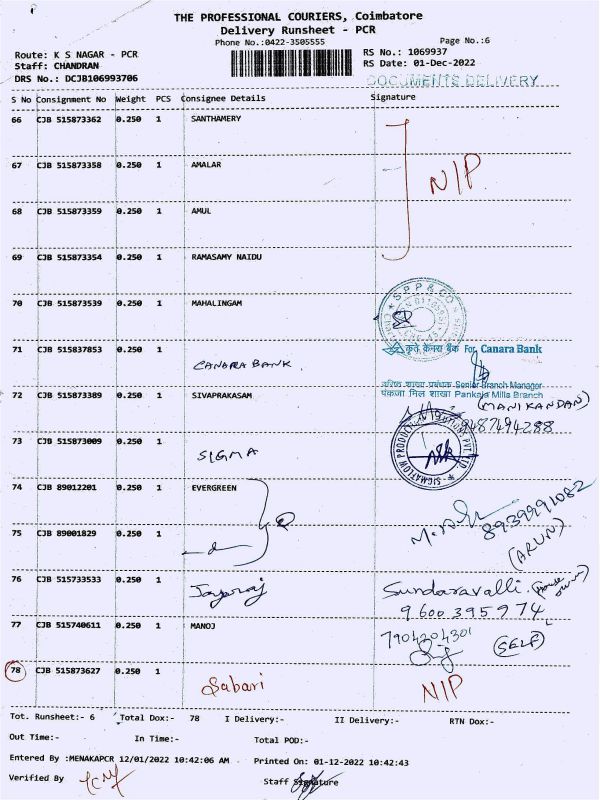 THE PROFESSIONAL COURIERS, Coimbatore
Delivery Runsheet - PCR
Phone No.:0422-3505555
Page No.:6
Route: K S NAGAR - PCR
RS No.: 1069937
Staff: CHANDRAN
RS Date: 01-Dec-2022
DRS No.: DCJB106993706
DOCUMENTS DELIVERY
S No Consignment No Weight PCS Consignee Details Signature
66 CJB 515873362 0.250 1 SANTHAMERY
67 CJB 515873358 0.250 1 AMALAR NIP
68 CJB 515873359 0.250 1 AMUL
69 CJB 515873354 0.250 1 RAMASAMY NAIDU
70 CJB 515873539 0.250 1 MAHALINGAM
SPP & CO
71 CJB 515837853 0.250 1 CANARA BANK
कृते केनरा बैंक For Canara Bank
वरिष्ठ शाखा प्रबंधक Senior Branch Manager
पंकजा मिल शाखा Pankaja Mills Branch
72 CJB 515873389 0.250 1 SIVAPRAKASAM (MANIKANDAN)
9487494288
73 CJB 515873009 0.250 1 SIGMA
SIGMAFLOW PRODUCTS PVT LTD
74 CJB 89012201 0.250 1 EVERGREEN
8939991082
75 CJB 89001829 0.250 1 (ARUN)
76 CJB 515733533 0.250 1 Jayaraj Sundaravalli (House owner)
9600395974
77 CJB 515740611 0.250 1 MANOJ 7904204301
(SELF)
78 CJB 515873627 0.250 1 Sabari NIP
Tot. Runsheet:- 6 Total Dox:- 78 I Delivery:- II Delivery:- RTN Dox:-
Out Time:- In Time:- Total POD:-
Entered By :MENAKAPCR 12/01/2022 10:42:06 AM Printed On: 01-12-2022 10:42:43
Verified By Staff Signature